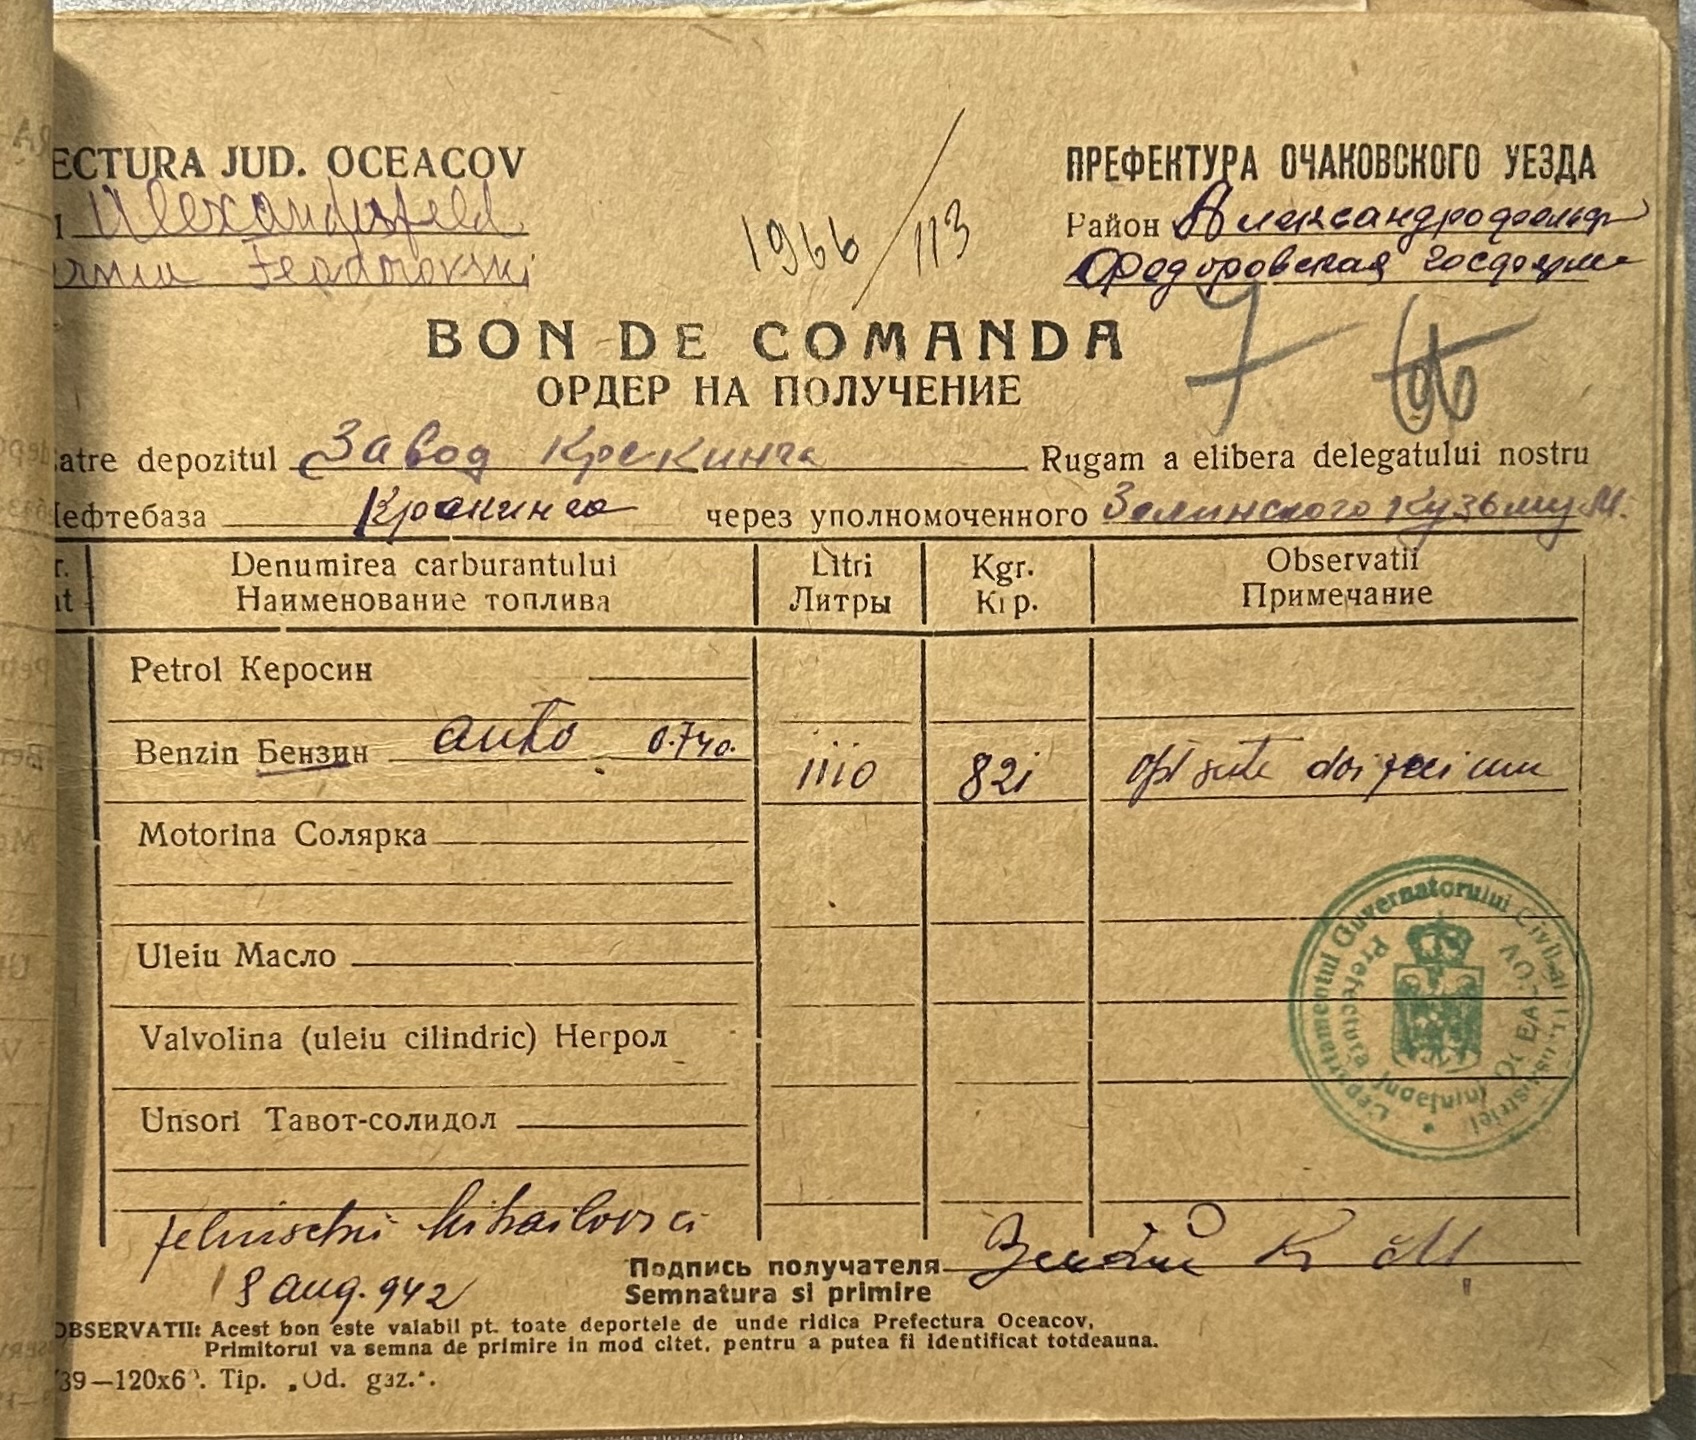 ECTURA JUD. OCEACOV
ПРЕФЕКТУРА ОЧАКОВСКОГО УЕЗДА
Alexanderfeld
Район Александрофельд
Feodorovski
Федоровская
1966/113
BON DE COMANDA
ОРДЕР НА ПОЛУЧЕНИЕ
7
atre depozitul Завод Крекинга Rugam a elibera delegatului nostru
ефтебаза Крекинга через уполномоченного Зелинского Кузьму М.
r. Denumirea carburantului Litri Kgr. Observatii
t Наименование топлива Литры Кгр. Примечание
Petrol Керосин
Benzin Бензин auto 0.740. 1110 821 opt sute doi zeci unu
Motorina Солярка
Uleiu Масло
Valvolina (uleiu cilindric) Негрол
Unsori Тавот-солидол
Departamentul Guvernatorului Civil al Transnistriei
Prefectura Județului OCEACOV
Подпись получателя
Semnatura si primire К М
18 aug. 942
OBSERVATII: Acest bon este valabil pt. toate deportele de unde ridica Prefectura Oceacov,
Primitorul va semna de primire in mod citet, pentru a putea fi identificat totdeauna.
39—120x6 . Tip. „Od. gaz.“.